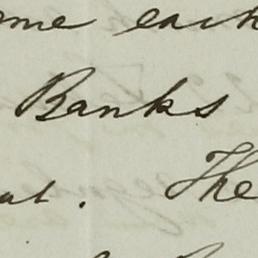 ome each
Banks
al. The